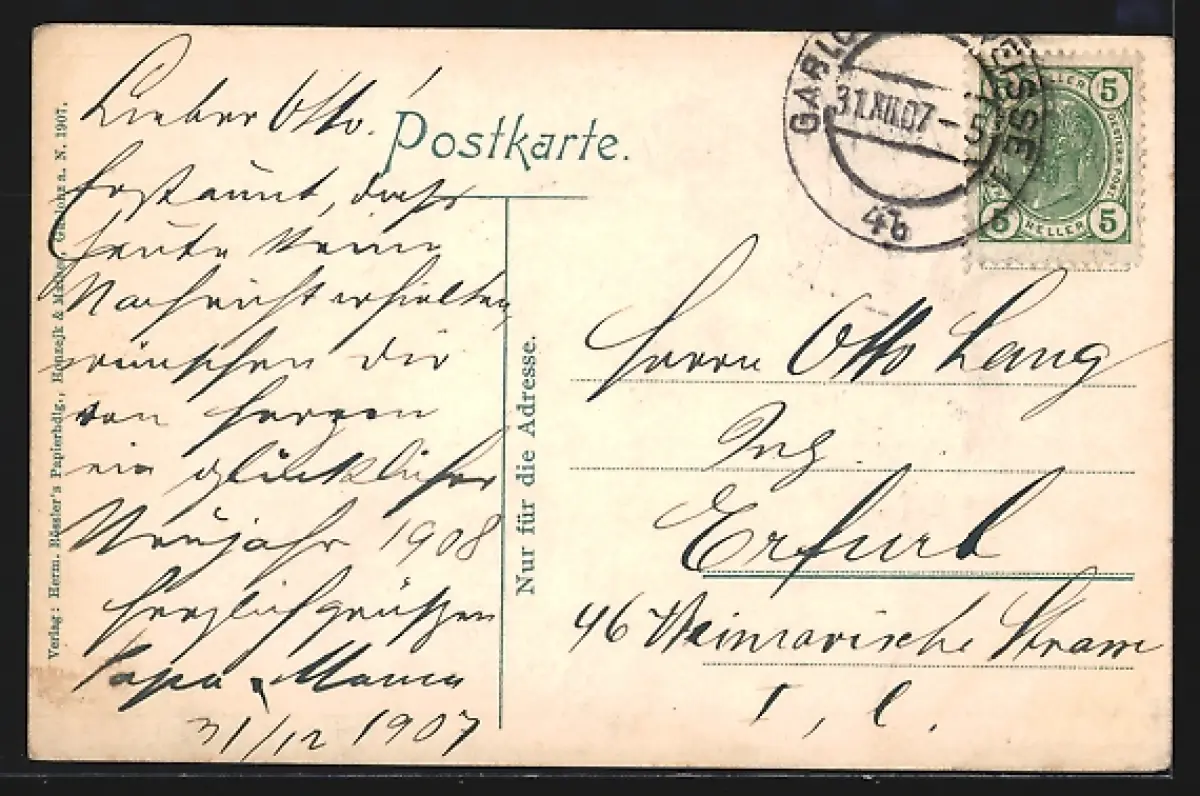 Lieber Otto!
Erstaunt, dass
heute keine
Nachricht erhielten,
wünschen dir
von Herzen
ein glückliches
Neujahr 1908
Herzlich grüssen
Papa & Mama
31/12 1907
Postkarte.
Nur für die Adresse.
Verlag: Herm. Rössler's Papierhdlg., Honzejk & Gablonz a. N. 1907.
GABLO
31.XII.07-5
4b
HELLER
5
5
5
HELLER
Herrn Otto Lang
Ing.
Erfurt
46 Weimarische Strasse
I, l.